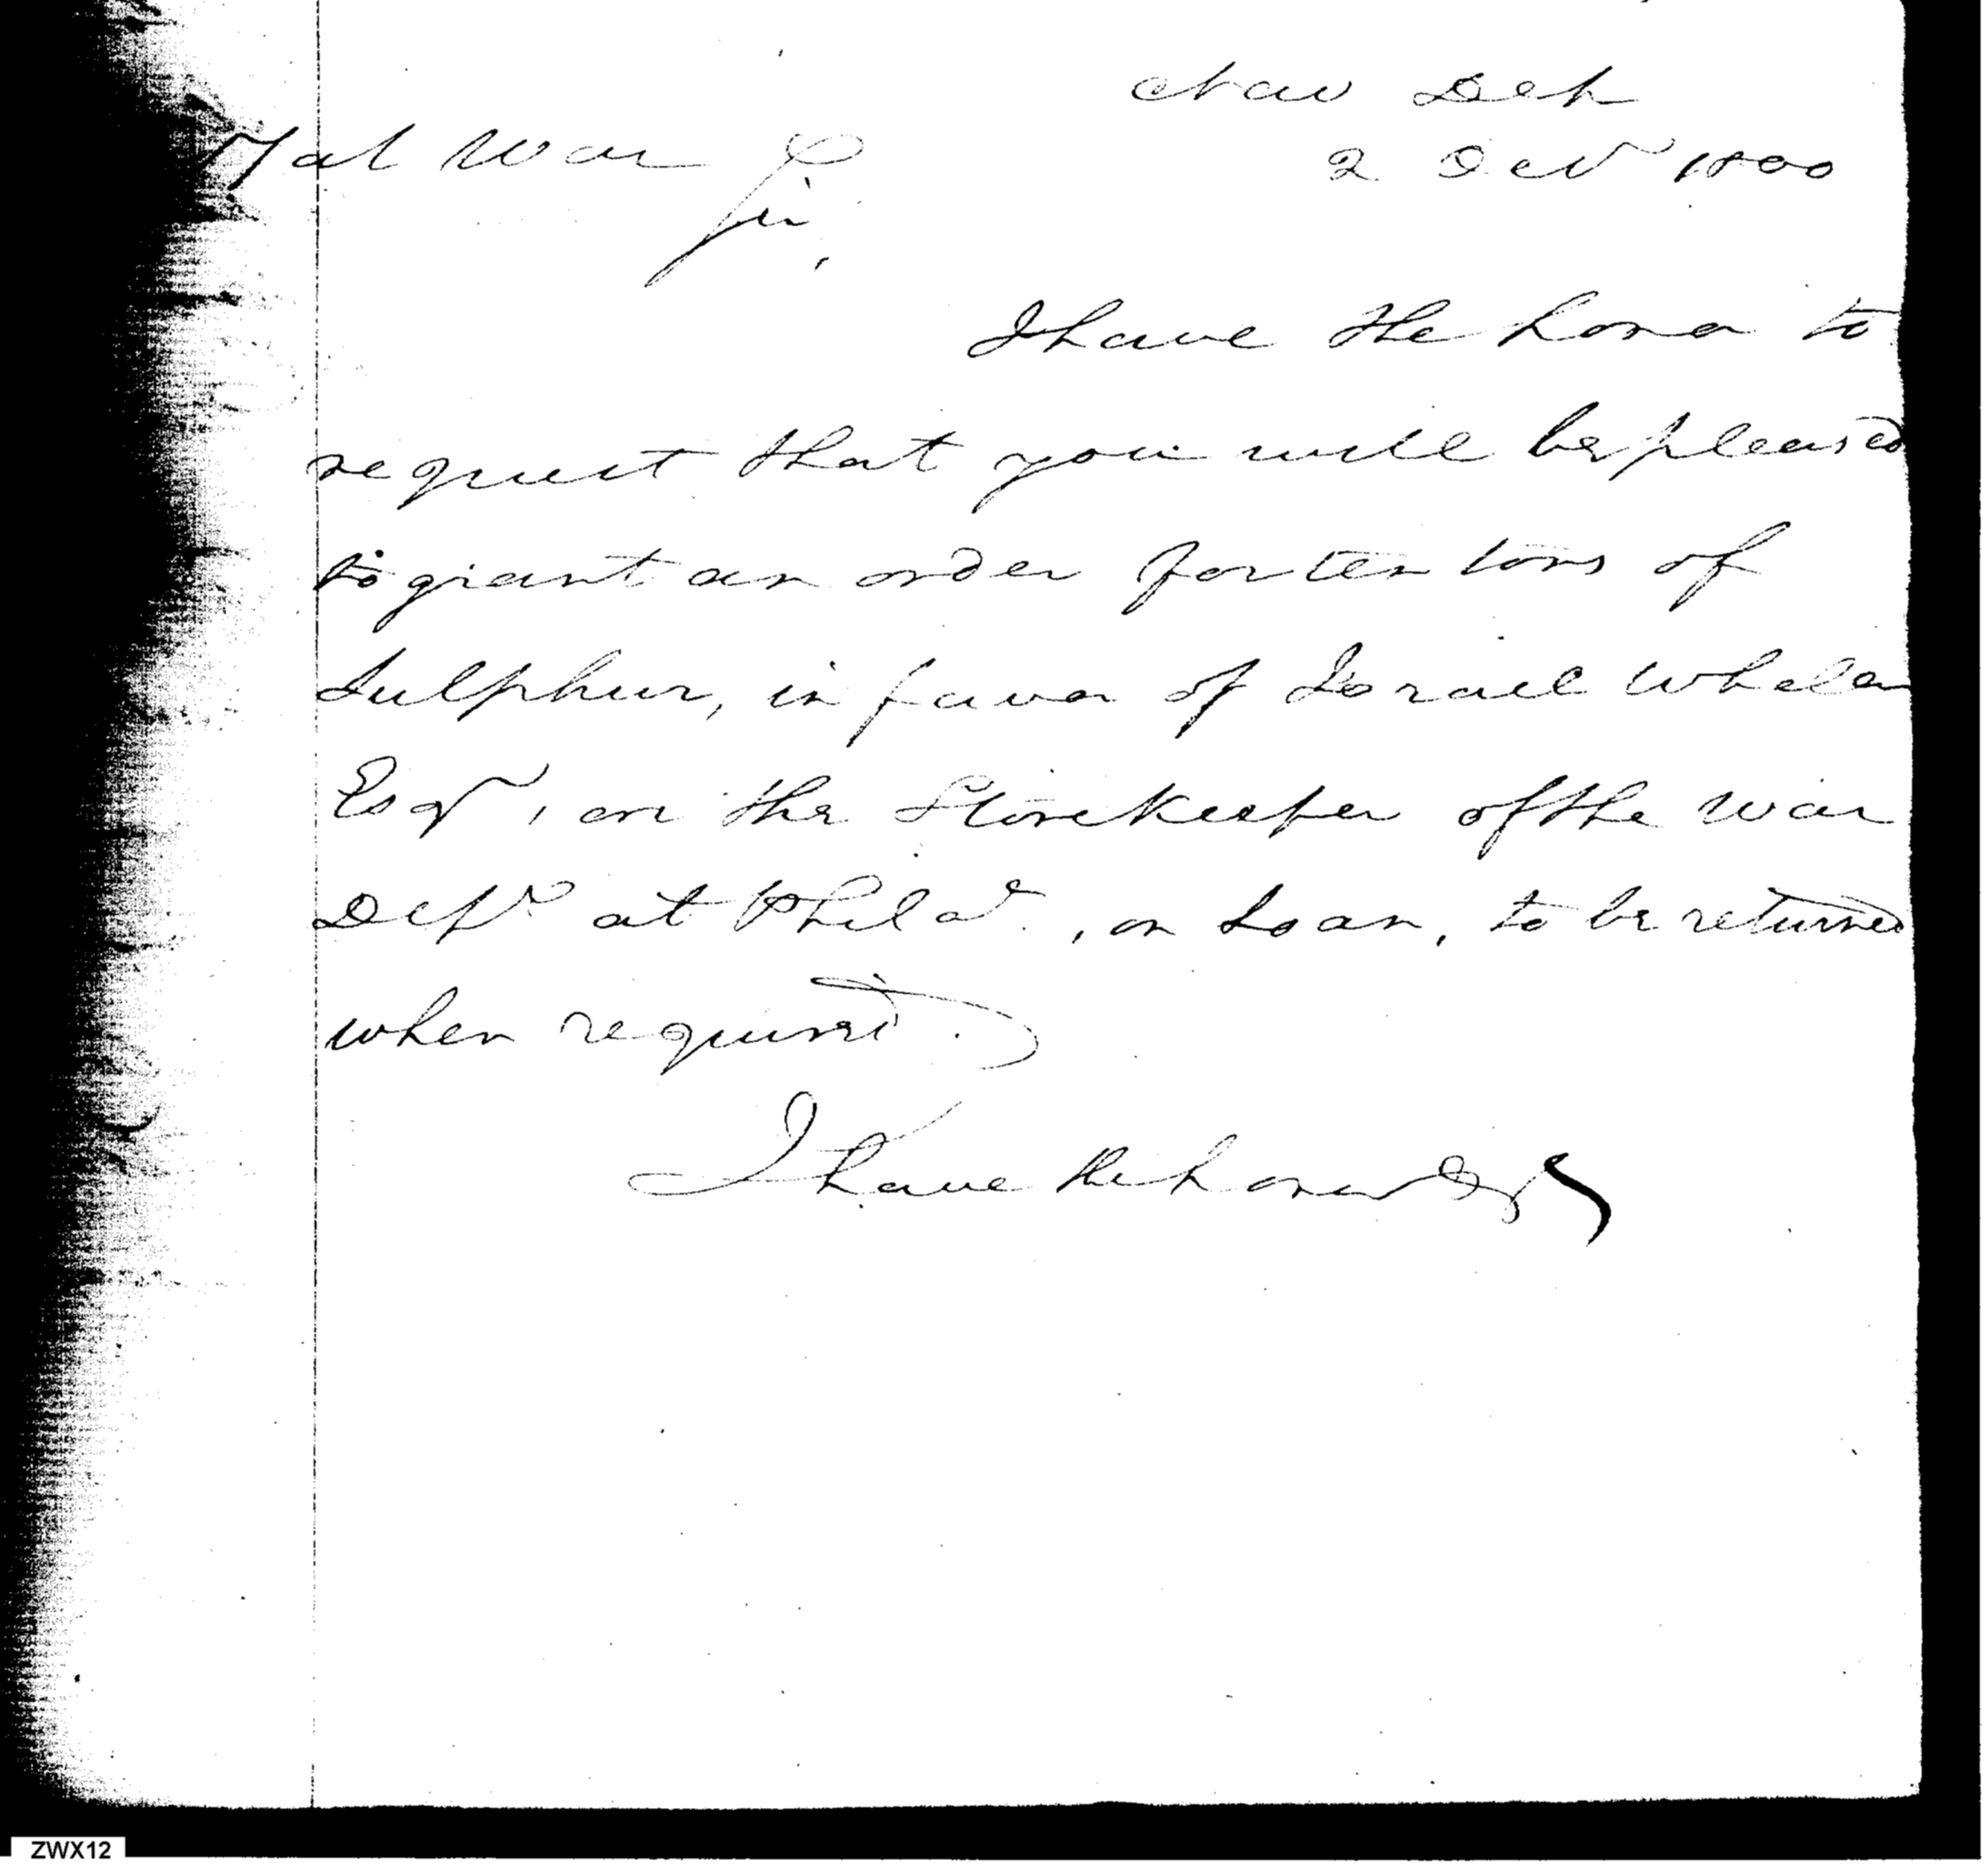 Nav Dep
2 Decr 1800
at War
Sir,
I have the honor to
request that you will be pleased
to grant an order for ten tons of
Sulphur, in favor of Israel Whelen
Esqr, on the Storekeeper of the War
Depr at Philaa, on Loan, to be returned
when required.
I have the honor &c
ZWX12